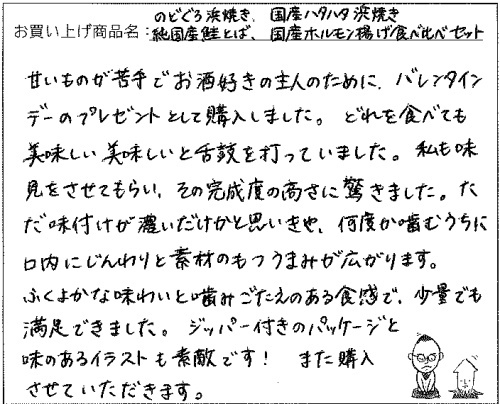 のどぐろ浜焼き、国産ハタハタ浜焼き
お買い上げ商品名：純国産鮭とば、国産ホルモン揚げ食べ比べセット
甘いものが苦手でお酒好きの主人のために、バレンタイン
デーのプレゼントとして購入しました。どれを食べても
美味しい美味しいと舌鼓を打っていました。私も味
見をさせてもらい、その完成度の高さに驚きました。た
だ味付けが濃いだけかと思いきや、何度か噛むうちに
口内にじんわりと素材のもつうまみが広がります。
ふくよかな味わいと噛みごたえのある食感で、少量でも
満足できました。ジッパー付きのパッケージと
味のあるイラストも素敵です！また購入
させていただきます。